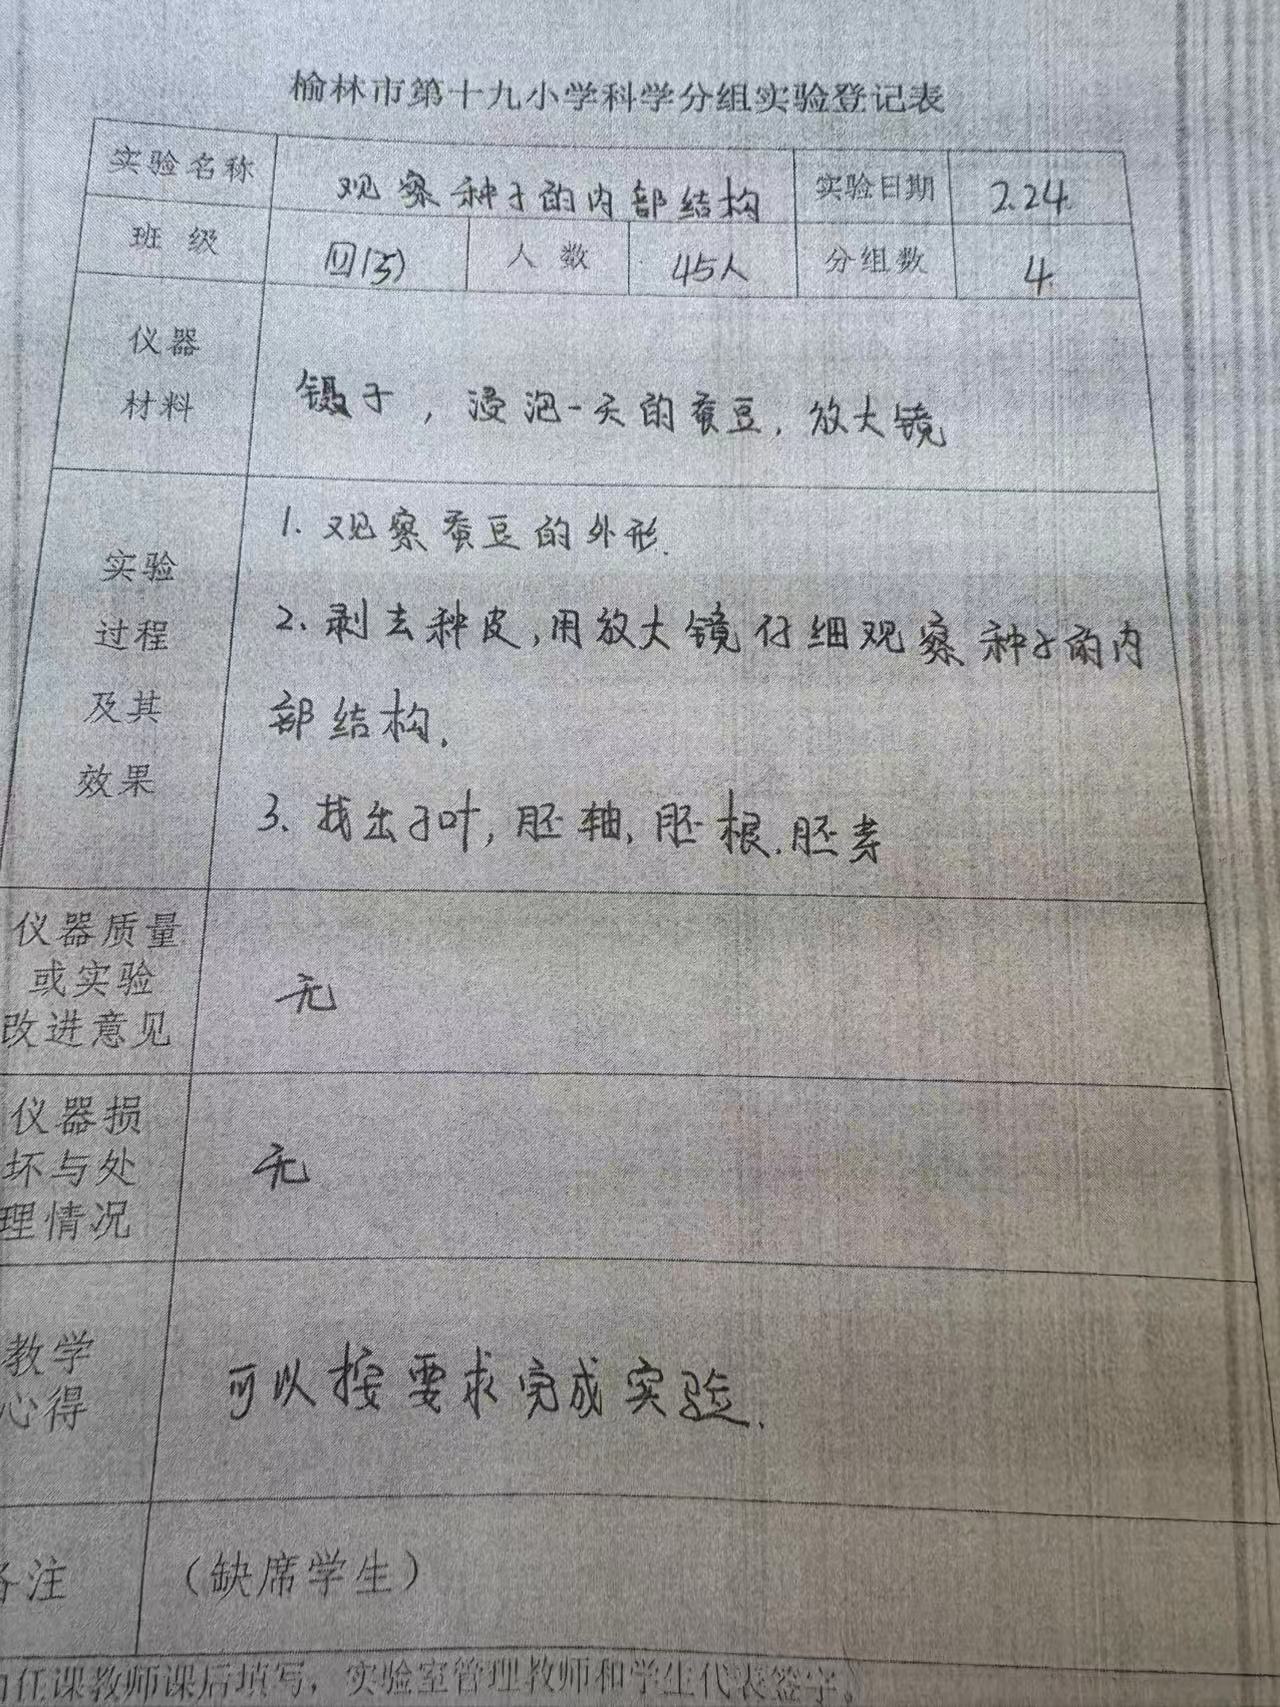 榆林市第十九小学科学分组实验登记表
实验名称 观察种子的内部结构 实验日期 2.24.
班级 四(5) 人数 45人 分组数 4.
仪器
材料
镊子，浸泡一天的蚕豆，放大镜
实验
过程
及其
效果
1. 观察蚕豆的外形.
2. 剥去种皮,用放大镜仔细观察种子的内
部结构.
3. 找出子叶,胚轴,胚根.胚芽
仪器质量
或实验
改进意见
无
仪器损
坏与处
理情况
无
教学
心得
可以按要求完成实验.
备注 （缺席学生）
任课教师课后填写，实验室管理教师和学生代表签字。